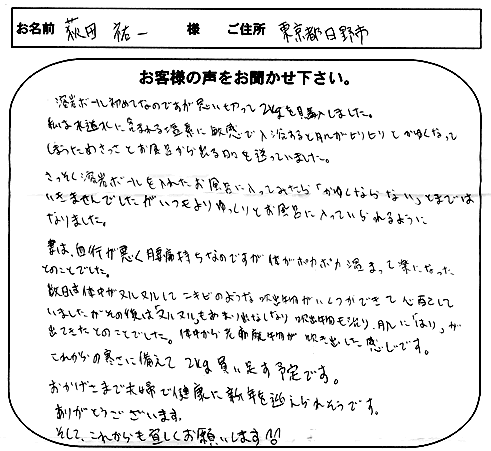 お名前 荻田 祐一 様 ご住所 東京都日野市
お客様の声をお聞かせ下さい。
溶岩ボール初めてなのですが思い切って2kgを購入しました。
私は水道水に含まれる塩素に敏感で入浴すると肌がピリピリとかゆくなって
しまうためさっさとお風呂から出る日々を送っていました。
さっそく溶岩ボールを入れたお風呂に入ってみたら「かゆくならない」とまでは
いきませんでしたがいつもよりゆっくりとお風呂に入っていられるように
なりました。
妻は、血行が悪く腰痛持ちなのですが体がポカポカ温まって楽になった
とのことでした。
数日は体中がヌルヌルしてニキビのような吹出物がいくつかできて心配して
いましたがその後は「ヌルヌル」もあまり出なくなり吹出物も治り、肌に「はり」が
出てきたとのことでした。体中から老廃物が吹き出した感じです。
これからの寒さに備えて2kg買い足す予定です。
おかげさまで夫婦で健康に新年を迎えられそうです。
ありがとうございます。
そして、これからも宜しくお願いします